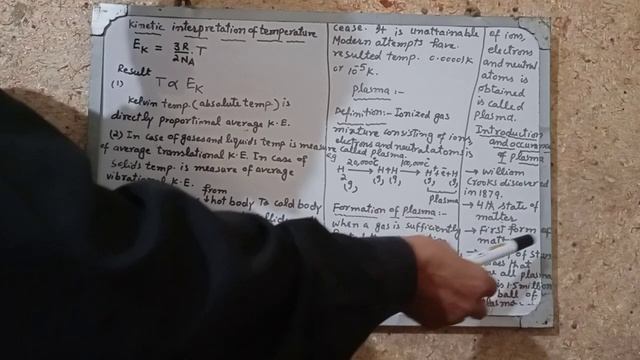 Kinetic interpretation of temperature
E_K = 3R/2N_A . T
Result
(1) T ∝ E_K
Kelvin temp. (absolute temp.) is
directly proportional average K.E.
(2) In case of gases and liquids temp is measure
of average translational K.E. In case of
solids temp. is measure of average
vibrational K.E.
from
hot body To cold body
cease. It is unattainable
Modern attempts have
resulted temp. 0.00001K
or 10⁻⁵K.
plasma:-
Definition:- Ionized gas
mixture consisting of ions,
electrons and neutral atoms is
called plasma.
eg
H₂ (g) 20,000c → H+H (g) (g) 100,000c → H⁺+e+H
plasma
Formation of plasma:-
when a gas is sufficiently
of ions,
electrons
and neutral
atoms is
obtained
is called
plasma.
Introduction
and occurance
of plasma
→ William
Crooks discovered
in 1879.
→ 4th state of
matter
→ First form of
of stars
that
all plasma
is 1.5 million
ball of
plasma